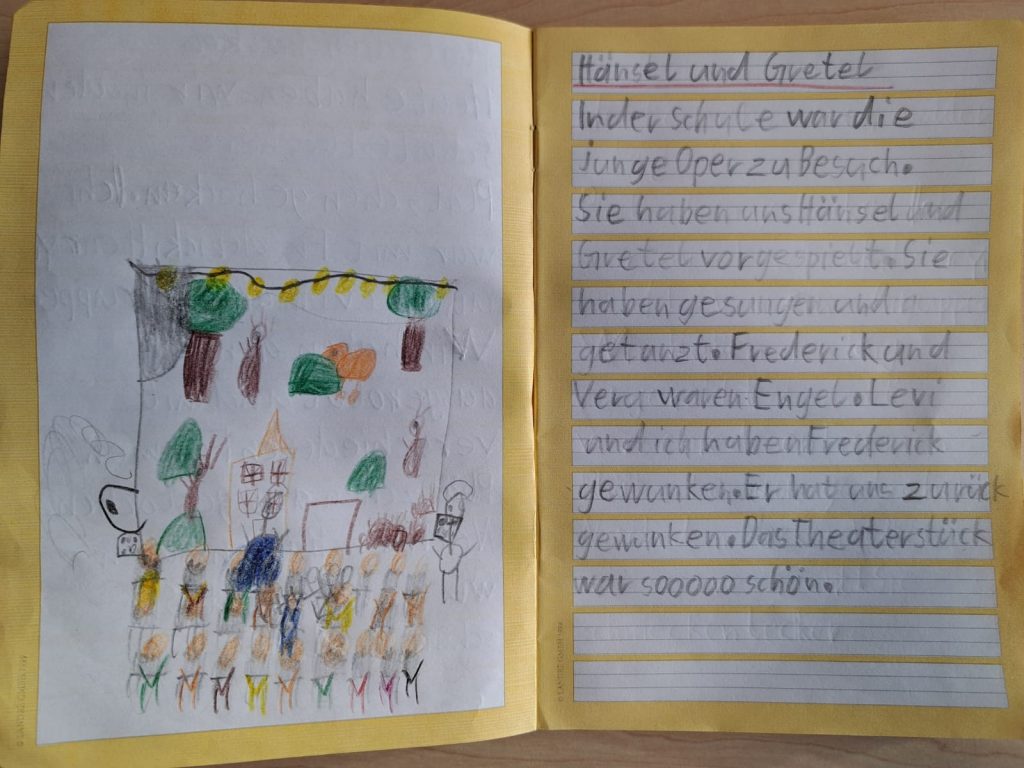 Hänsel und Gretel
In der Schule war die
junge Oper zu Besuch.
Sie haben uns Hänsel und
Gretel vorgespielt. Sie
haben gesungen und
getanzt. Frederick und
Vera waren Engel. Levi
und ich haben Frederick
gewunken. Er hat uns zurück
gewunken. Das Theaterstück
war sooooo schön.